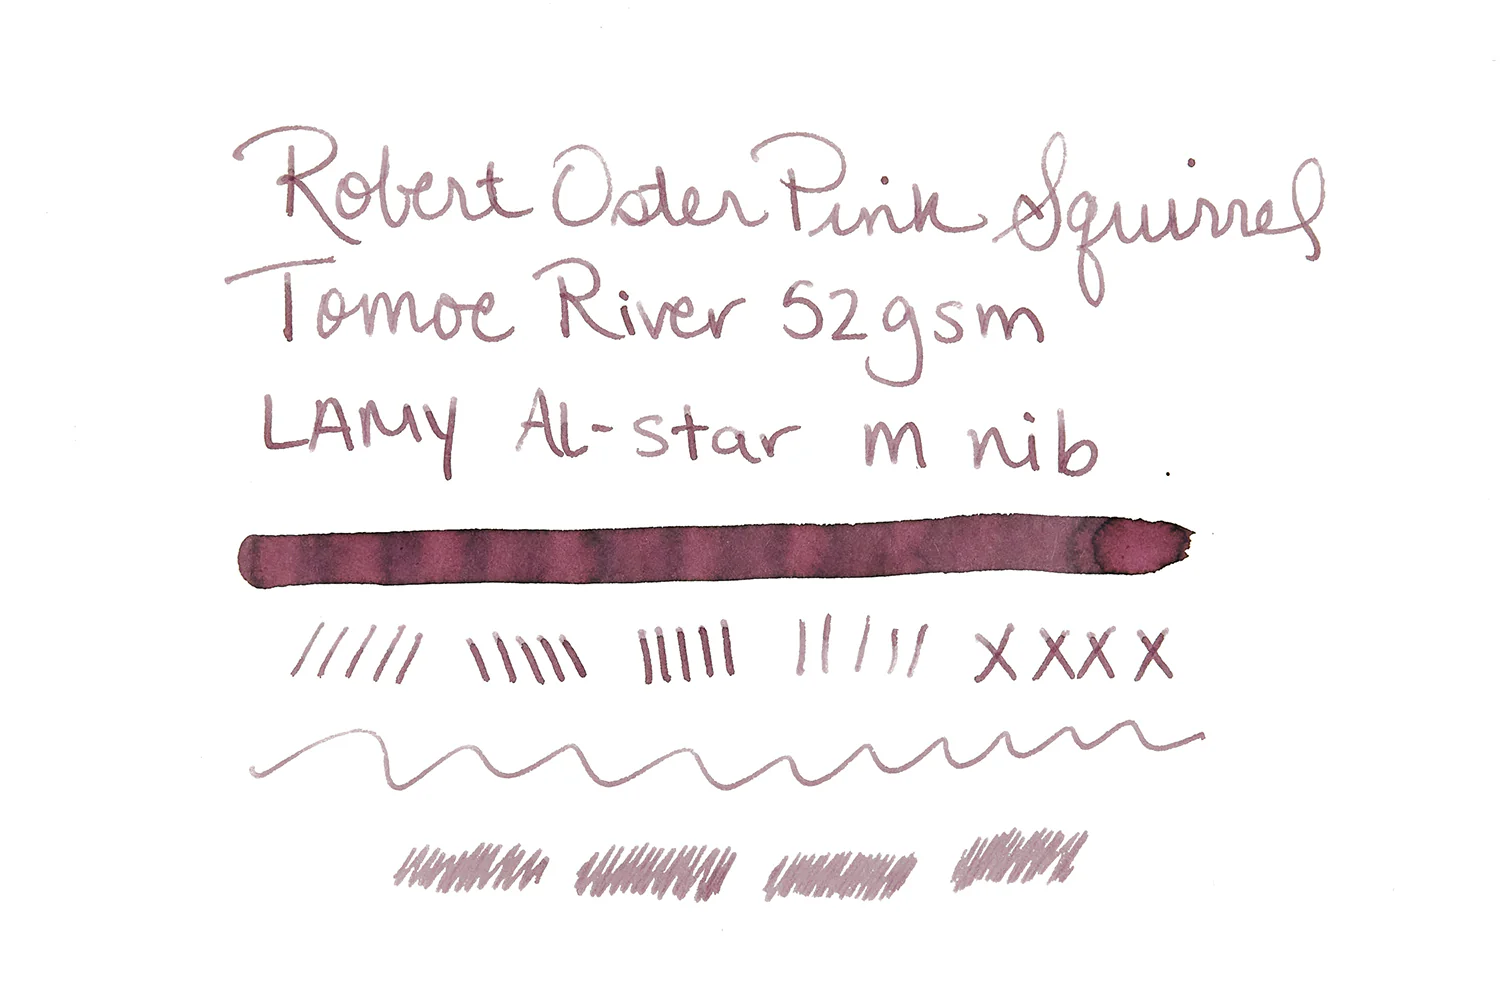 Robert Oster Pink Squirrel
Tomoe River 52gsm
LAMY Al-star m nib
XXXX